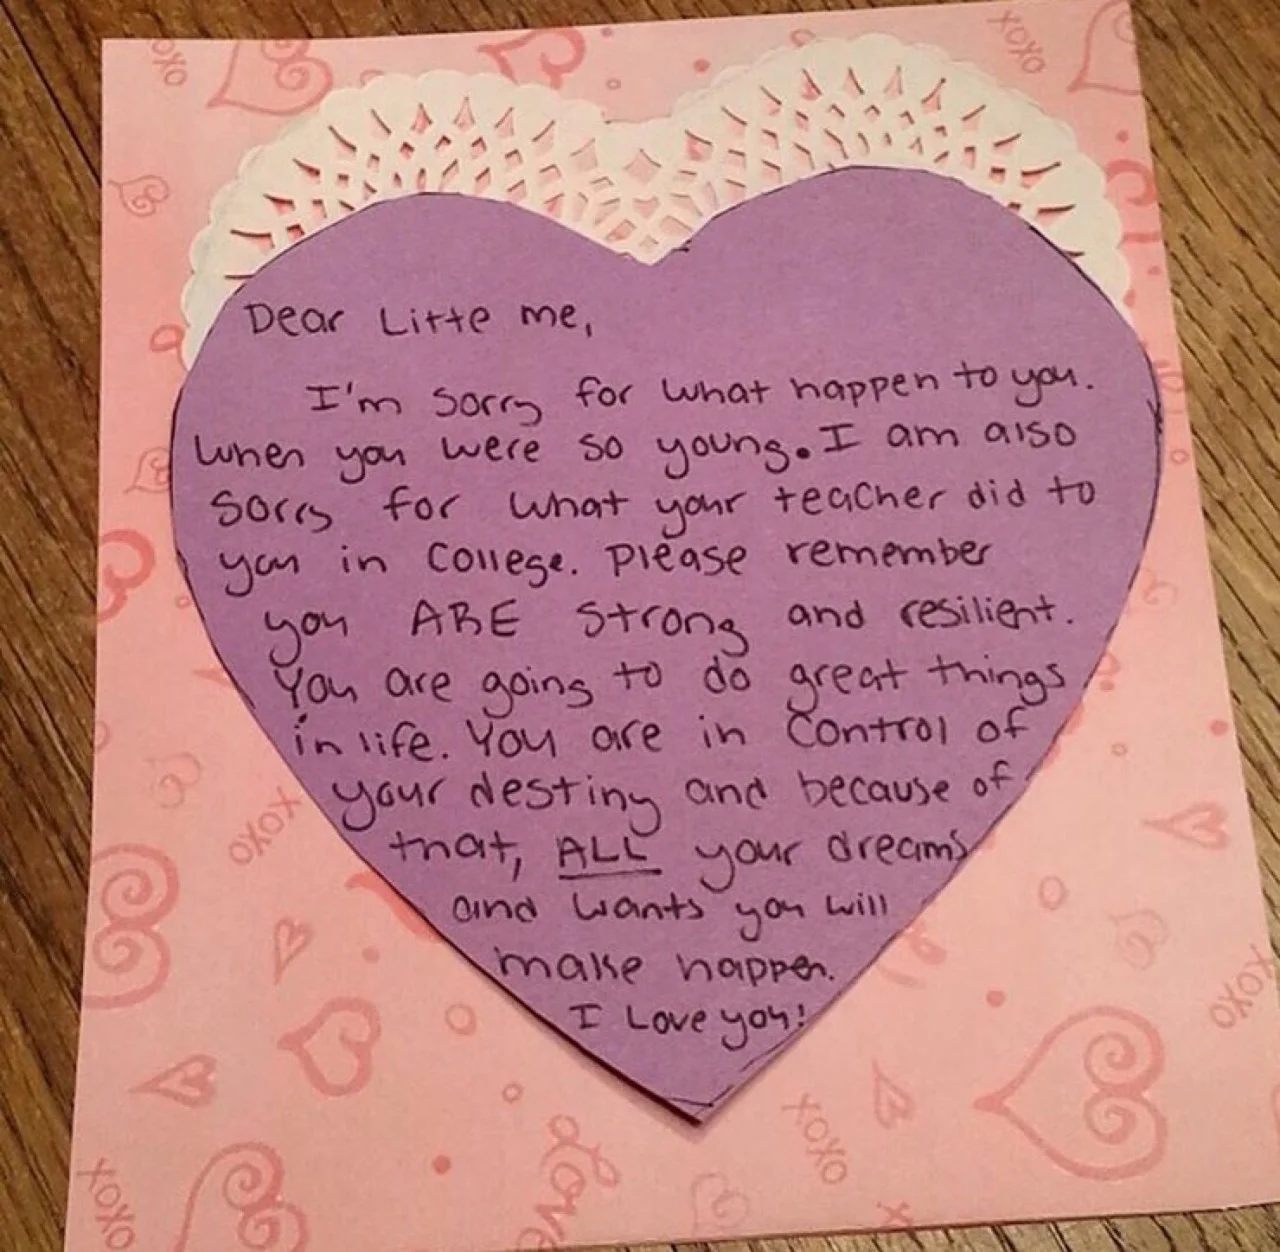 XOXO
XOXO
Dear Litte me,
I'm sorry for what happen to you.
When you were so young. I am also
sorry for what your teacher did to
you in College. Please remember
you ARE strong and resilient.
You are going to do great things
in life. You are in control of
your destiny and because of
that, ALL your dreams
and wants you will
make happen.
I Love you!
XOXO
XOXO
XOXO
XOXO
Love